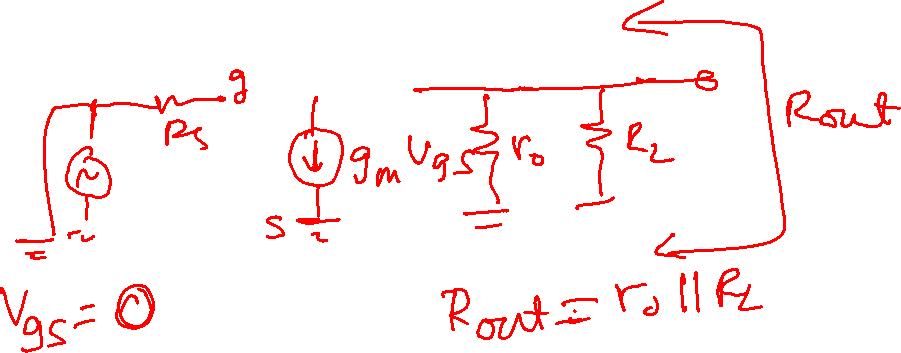 g
R_S
g_m V_gs
r_o
R_L
R_out
S
V_gs = 0
R_out = r_o || R_L